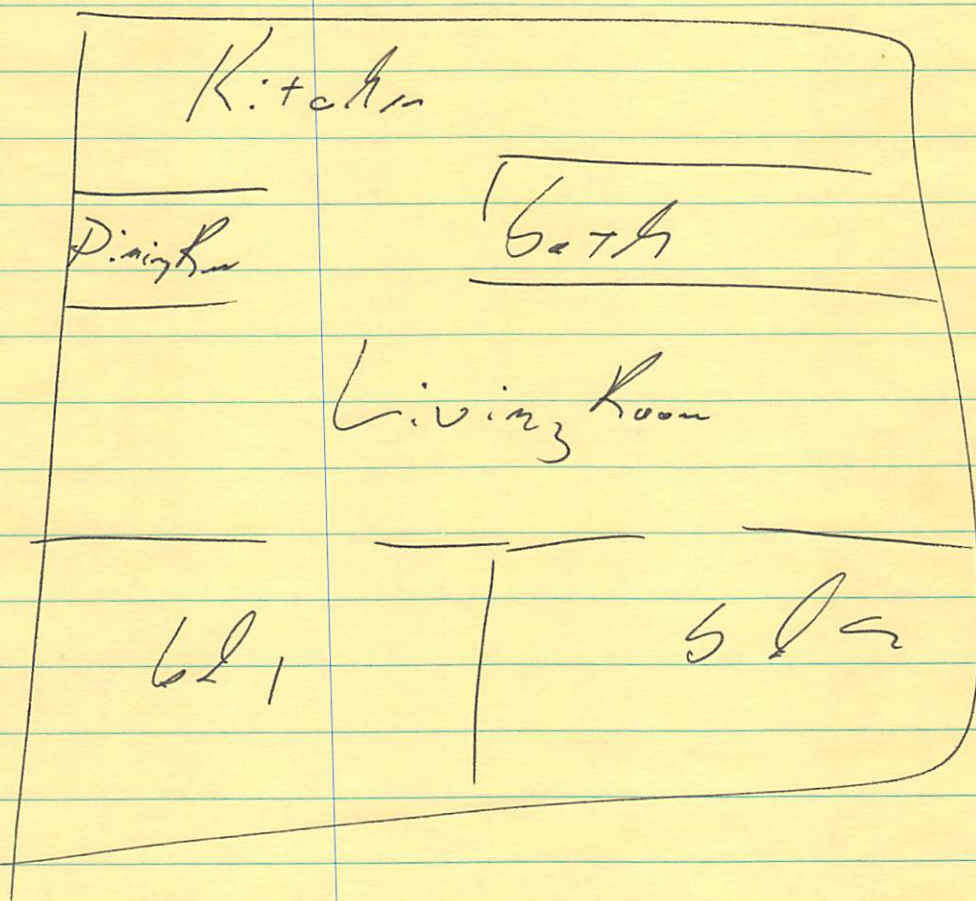 Kitchen
Dining Rm
bath
Living Room
bd 1
bd 2